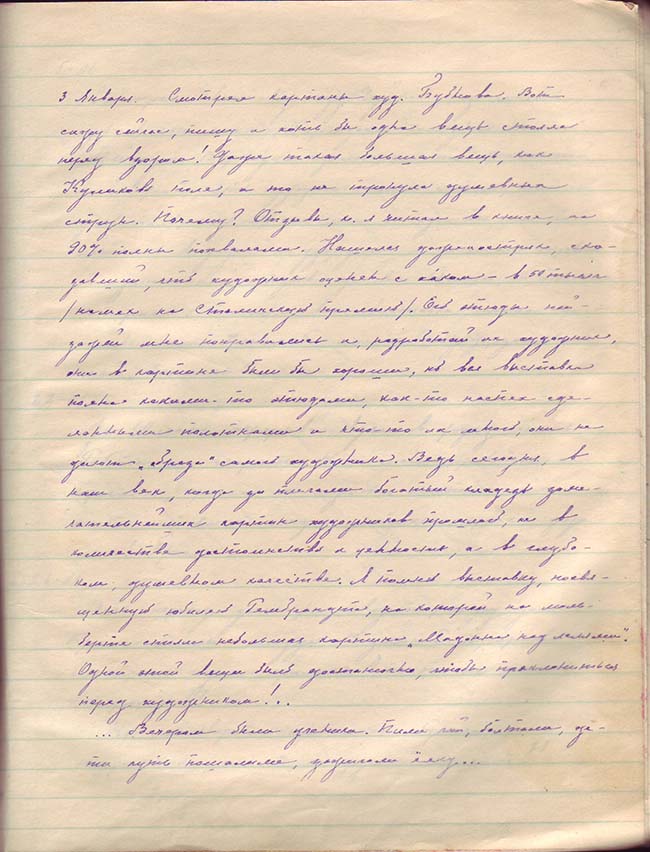 3 Января. Смотрел картины худ. Бубнова. Вот
сижу сейчас, пишу и хоть бы одна вещь стояла
перед взором! Даже такая большая вещь, как
Куликово поле, и то не тронула душевных
струн. Почему? Отзывы, к. я читал в книге, на
90% полны похвалами. Нашелся остряк, ска-
завший, что художник оценен с в 50 тысяч
/намек на Сталинскую премию/. Его этюды пей-
зажей мне понравились и, разработай их художник,
они в картине были бы хороши, но вся выставка
полна какими-то этюдами, как-то наспех сде-
ланными полотнами и что-то их много, они не
дают „ “ самого художника. Ведь сегодня, в
наш век, когда за плечами богатый кладезь заме-
чательнейших картин художников прошлого, не в
количестве достоинство и ценность, а в глубо-
ком, душевном качестве. Я помню выставку, посвя-
щенную юбилею Рембрандта, на которой на моль-
берте стояла небольшая картина „Мадонна над “.
Одной этой вещи было достаточно, чтобы преклониться
перед художником!..
... Вечером была ученики. Пили чай, болтали, де-
ти чуть пошалили, зажигали ёлку...